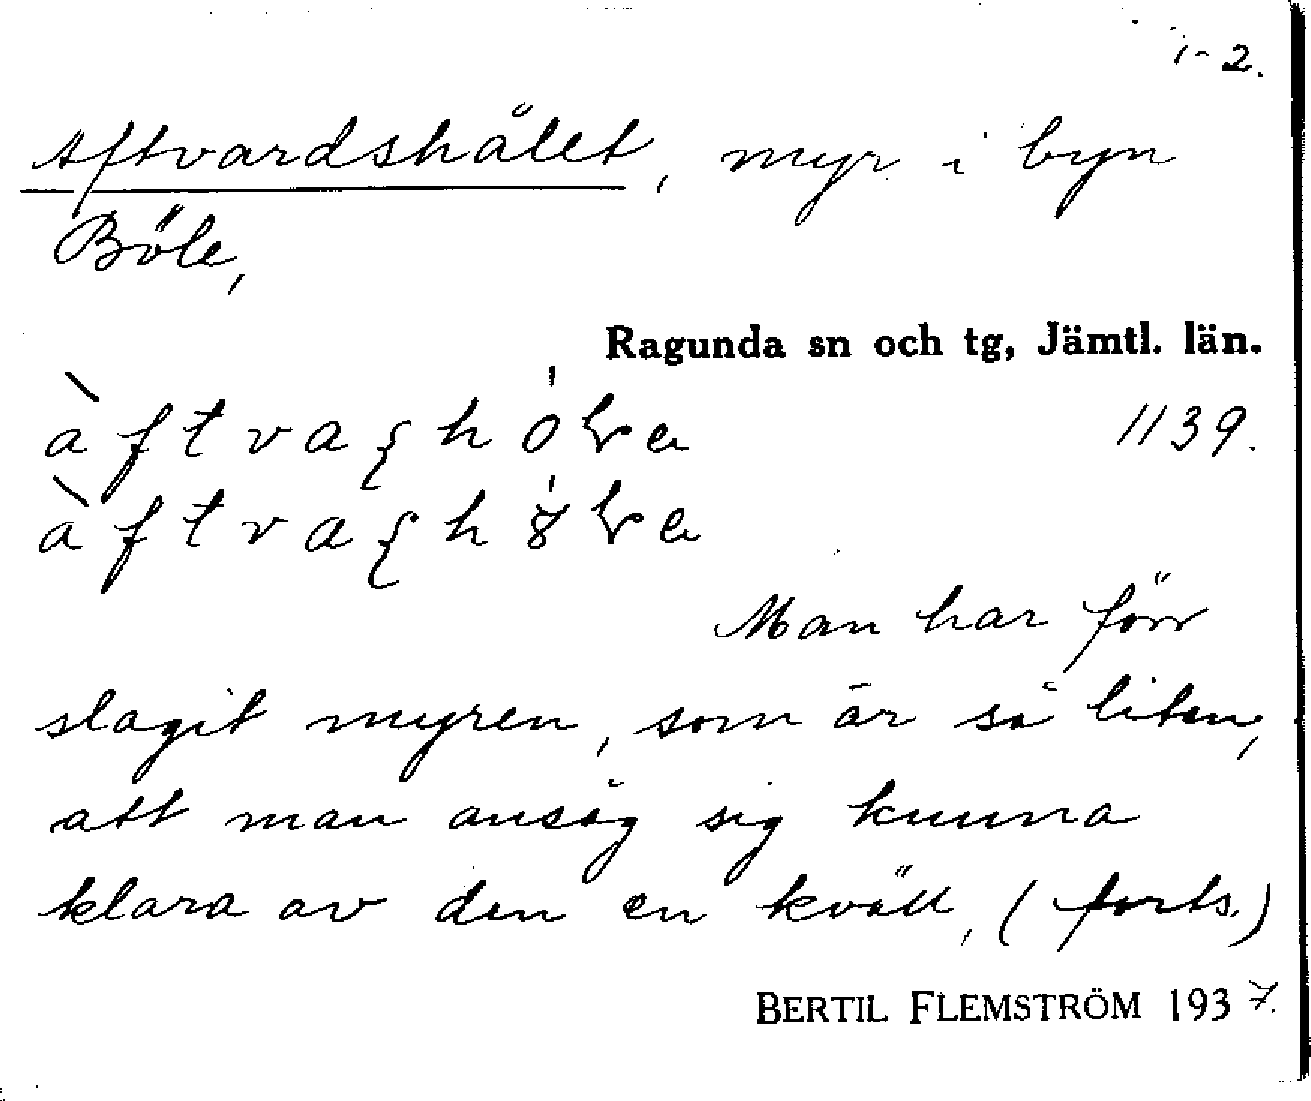 1-2.
Aftvardshålet, myr i byn
Böle,
Ragunda sn och tg, Jämtl. län.
1139.
Man har förr
slagit myren, som är så liten,
att man ansåg sig kunna
klara av den en kväll, (forts.)
BERTIL FLEMSTRÖM 1937.